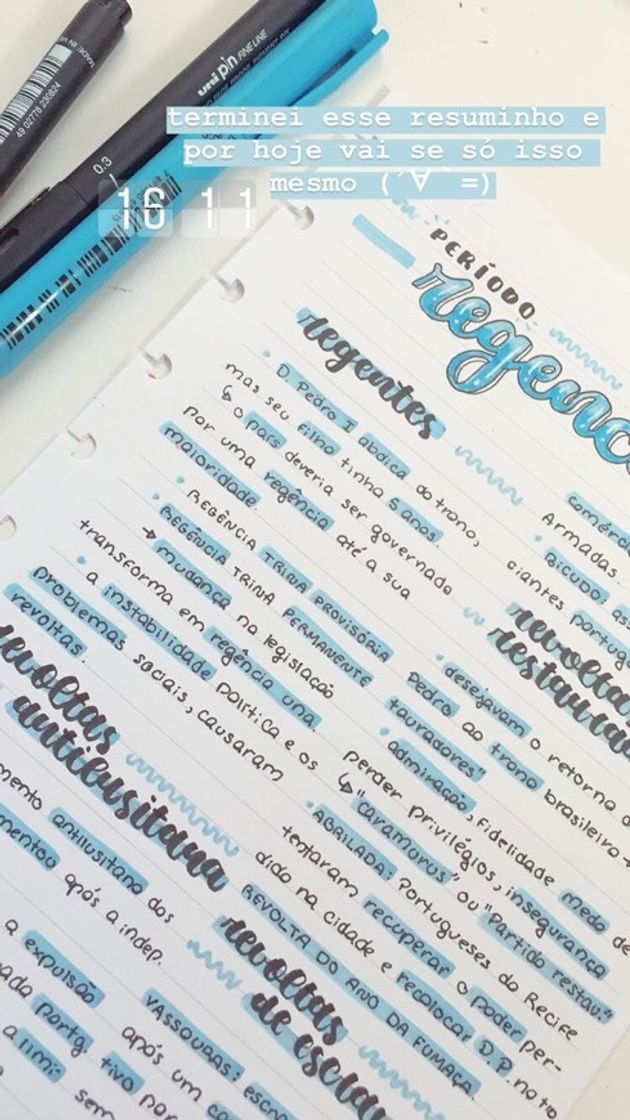 MADE IN
49 02778 230824
uni pin FINE LINE
0.3
terminei esse resuminho e
por hoje vai se só isso
mesmo (´∀`=)
16 11
PERÍODO
regenc
regentes
• D. Pedro I abdica do trono,
mas seu filho tinha 6 anos.
↳ o país deveria ser governado
por uma regência até a sua
maioridade.
• REGÊNCIA TRINA PROVISÓRIA
• REGÊNCIA TRINA PERMANENTE
→ mudança na legislação
transforma em regência una.
• a instabilidade política e os
problemas sociais, causaram
revoltas.
revoltas
antilusitana
mento antilusitano dos
mentou após a indep.
a expulsão
portg.
revoltas
de escra
VASSOURAS: escra
após um
tivo por
sem
comérc
Armadas.
• BICUDO:
ciantes portug
revoltas
restaura
• desejavam o retorno
Pedro ao trono brasileiro
tauradores"
• admiração, fidelidade medo de
perder privilégios, insegurança
↳ "caramurus" ou "Partido restau."
• ABRILADA: Portugueses do Recife
tentaram recuperar o poder per-
dido na cidade e recolocar D.P. no
REVOLTA DO ANO DA FUMAÇA.